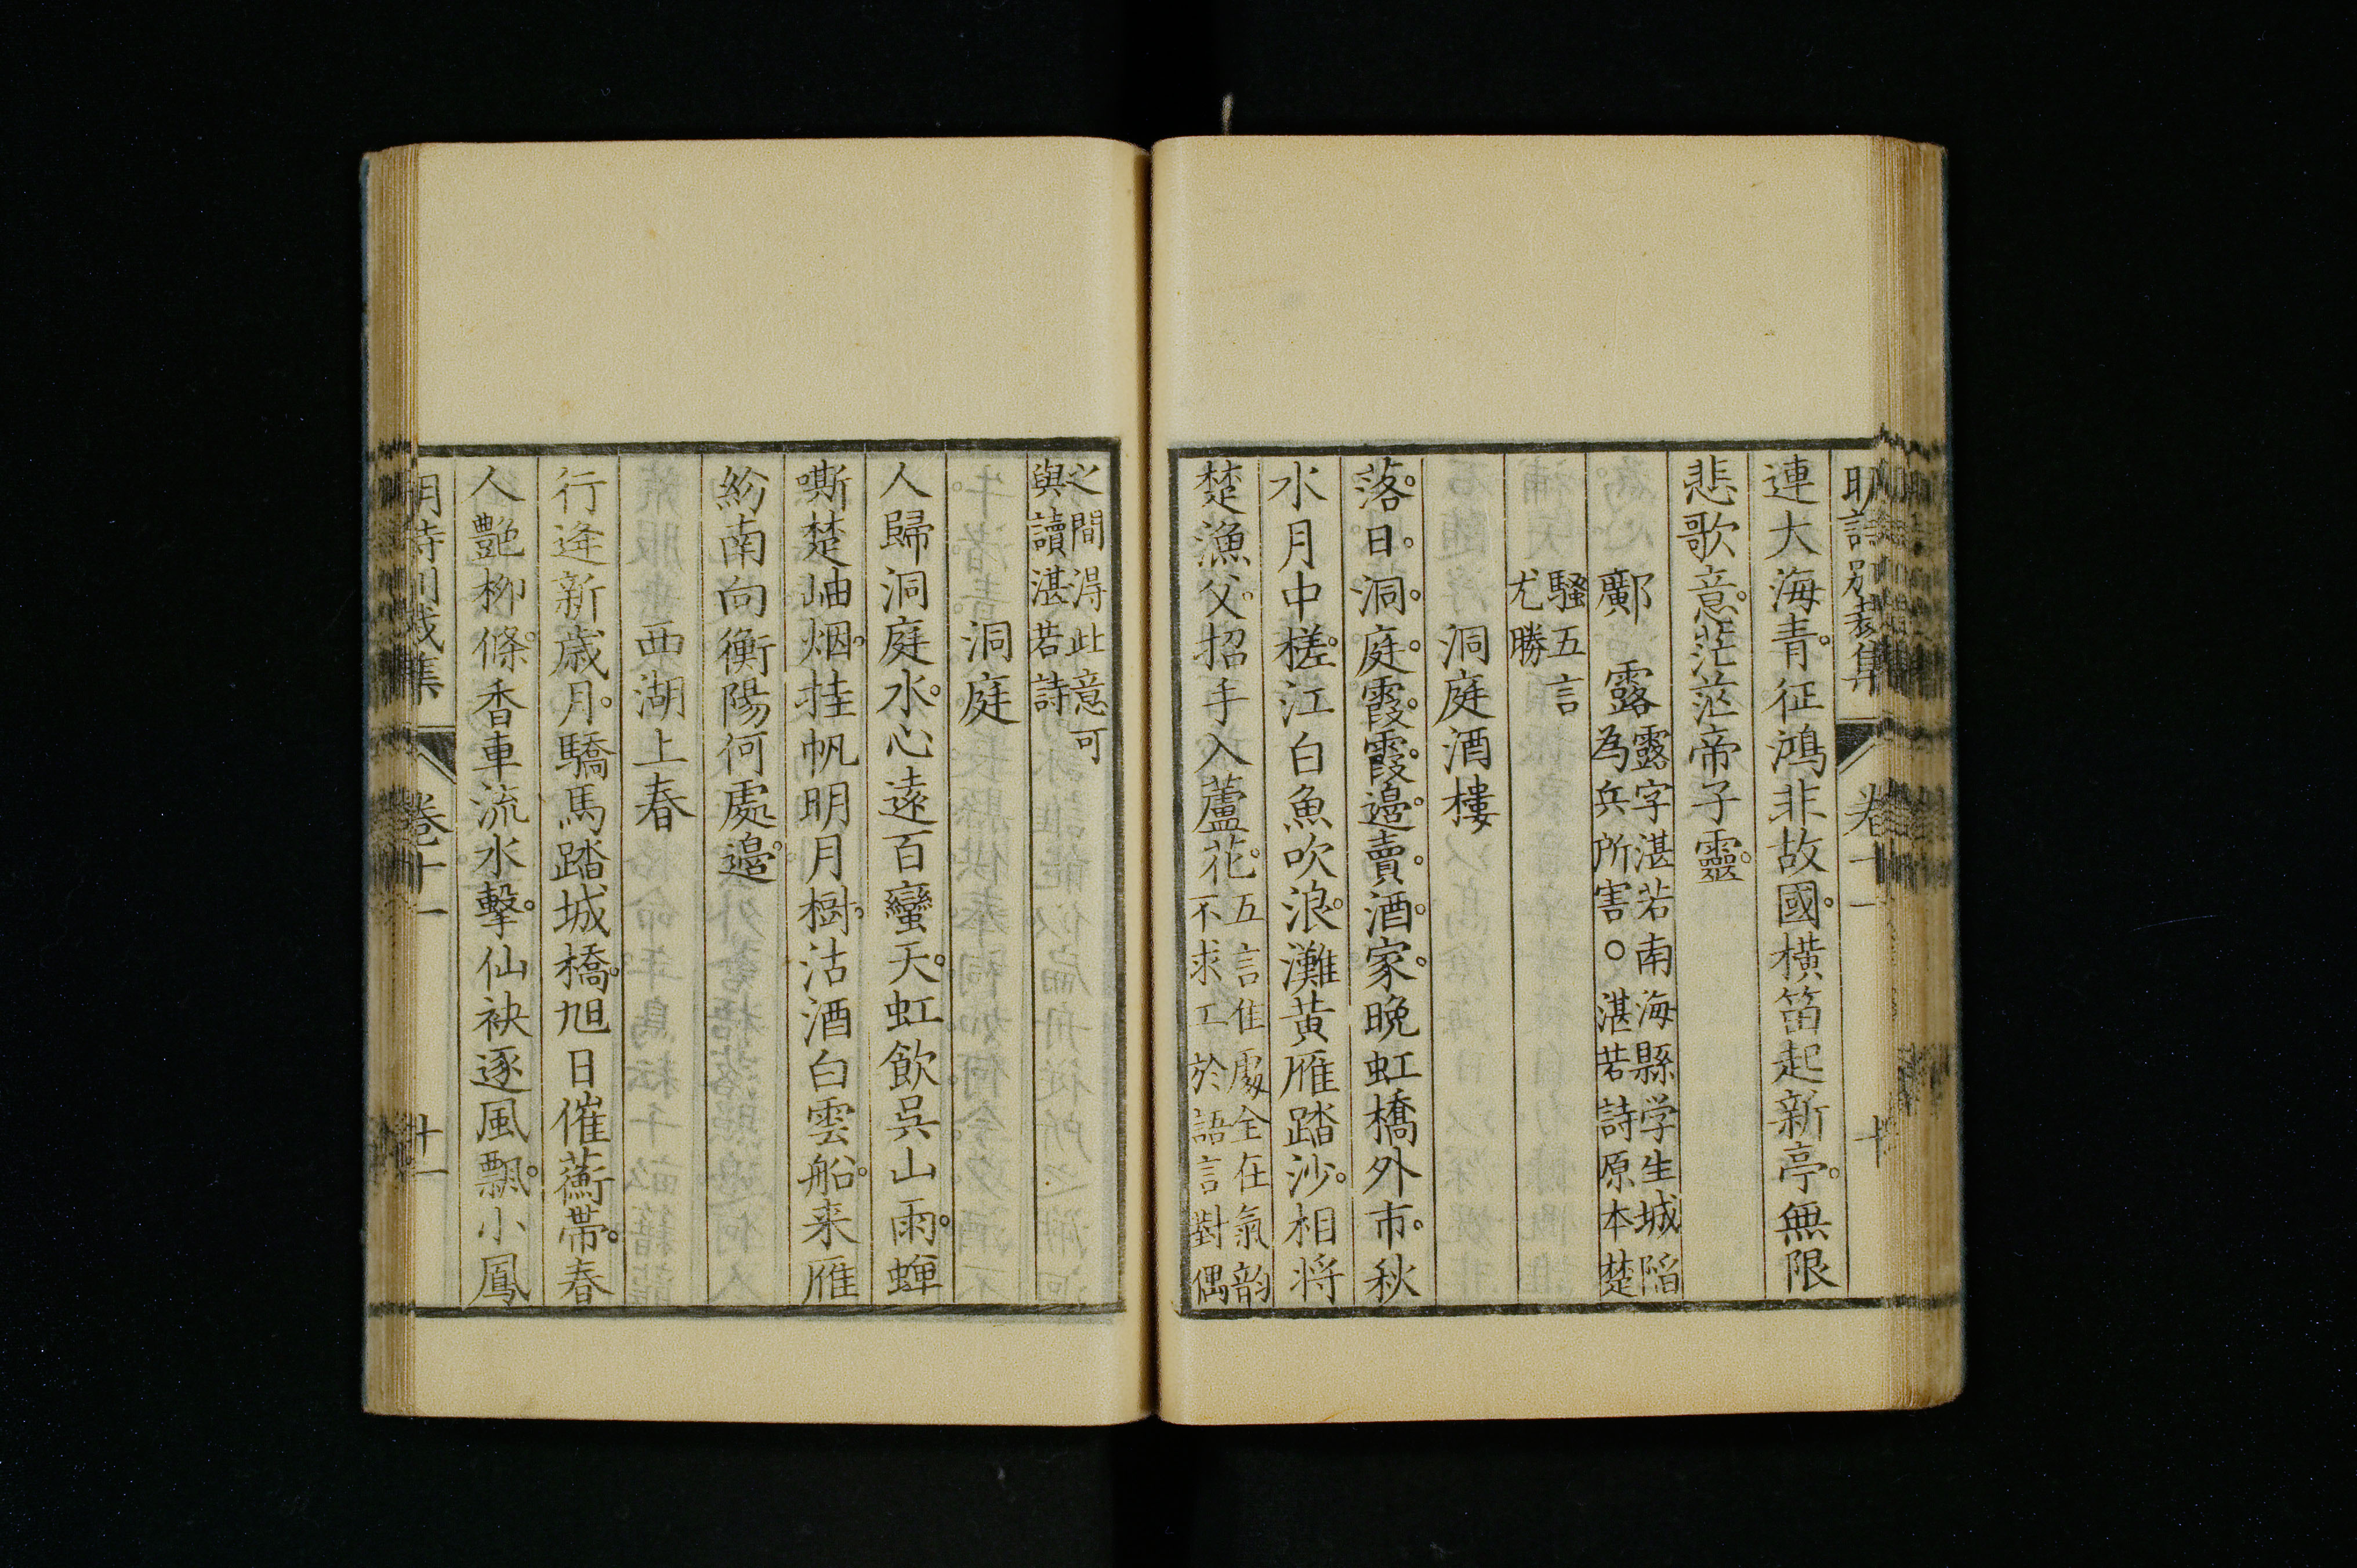 明詩別裁集 卷十一 十
連大海青。征鴻非故國。橫笛起新亭。無限
悲歌意。茫茫帝子靈。
鄺露 露字湛若南海縣学生城陷
為兵所害○湛若詩原本楚
騷五言
尤勝
洞庭酒樓
落日洞庭霞。霞邊賣酒家。晚虹橋外市。秋
水月中槎。江白魚吹浪。灘黃雁踏沙。相將
楚漁父。招手入蘆花。五言佳處全在氣韵
不求工於語言對偶
之間得此意可
與讀湛若詩
洞庭
人歸洞庭水。心遠百蠻天。虹飲吳山雨。蟬
嘶楚岫烟。挂帆明月樹。沽酒白雲船。来雁
紛南向。衡陽何處邊。
西湖上春
行逢新歲月。驕馬踏城橋。旭日催蘅帶。春
人艷柳條。香車流水擊。仙袂逐風飄。小鳳
明詩別裁集 卷十一 十一